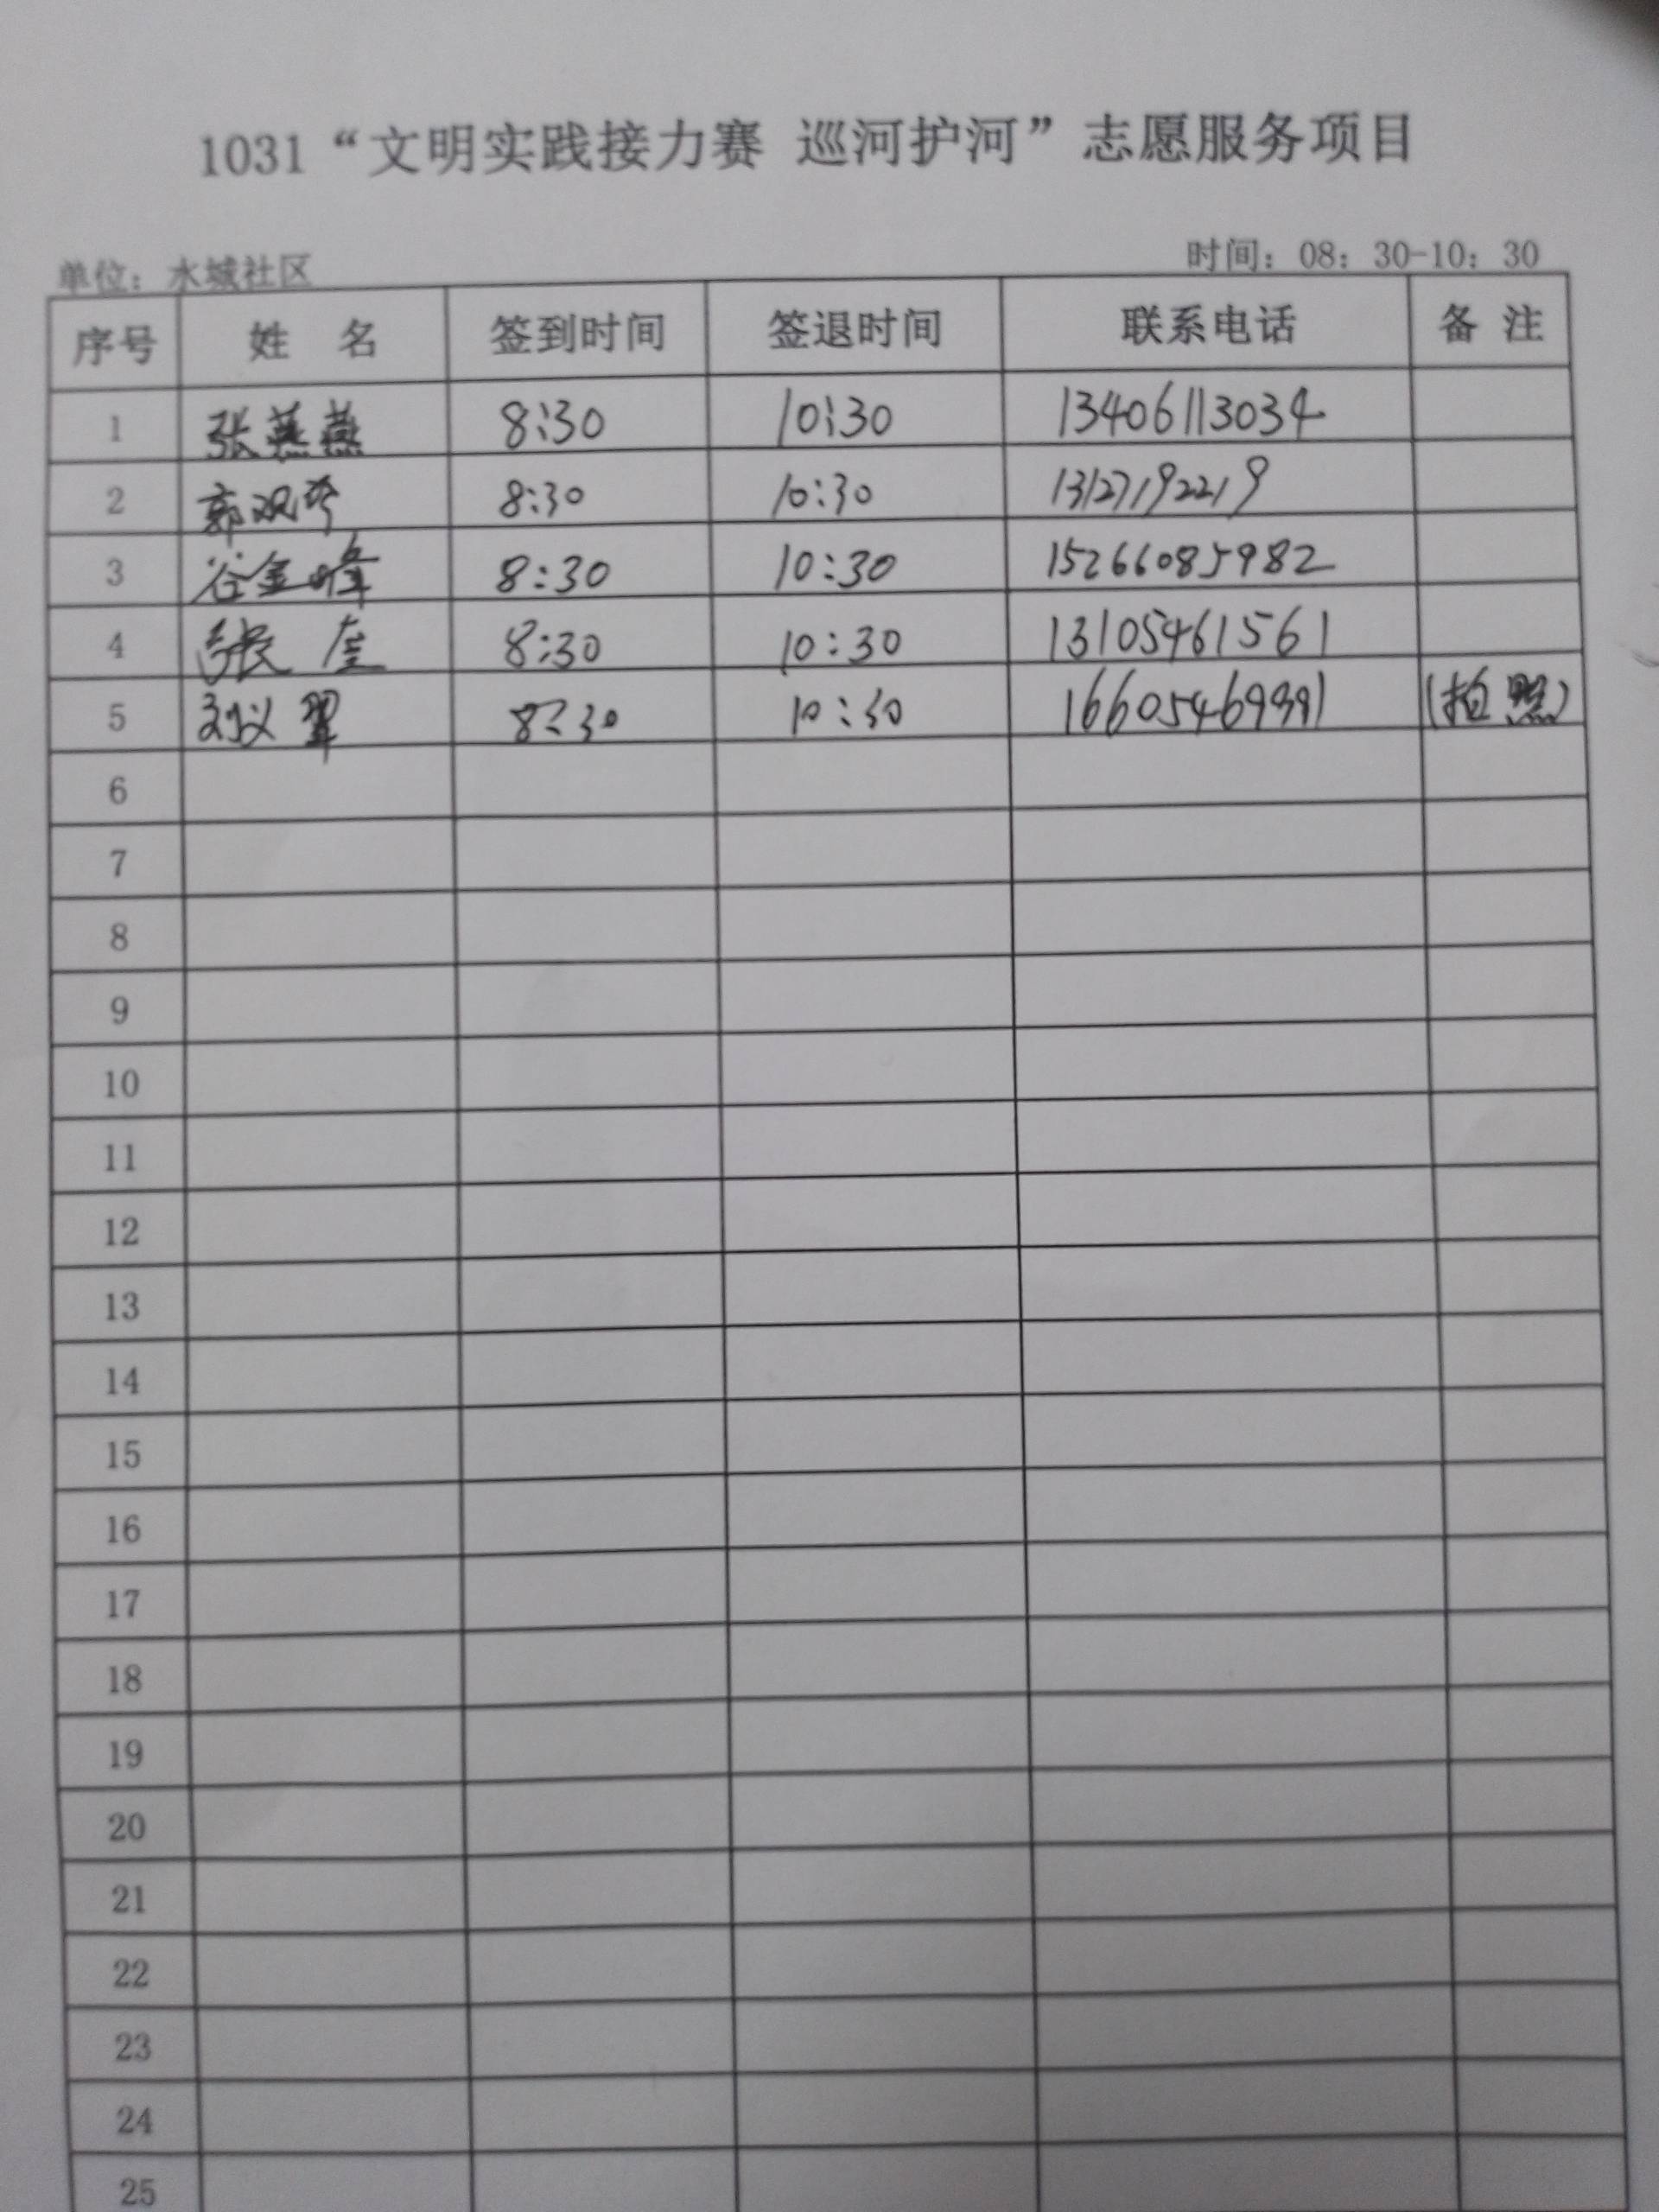 1031“文明实践接力赛 巡河护河”志愿服务项目
单位：水城社区 时间：08：30-10：30
序号 姓 名 签到时间 签退时间 联系电话 备 注
1 张燕燕 8:30 10:30 13406113034
2 郭观 8:30 10:30 13127192219
3 谷金峰 8:30 10:30 15266085982
4 张 8:30 10:30 13105461561
5 刘义翠 8:30 10:30 16605469991 （拍照）
6
7
8
9
10
11
12
13
14
15
16
17
18
19
20
21
22
23
24
25